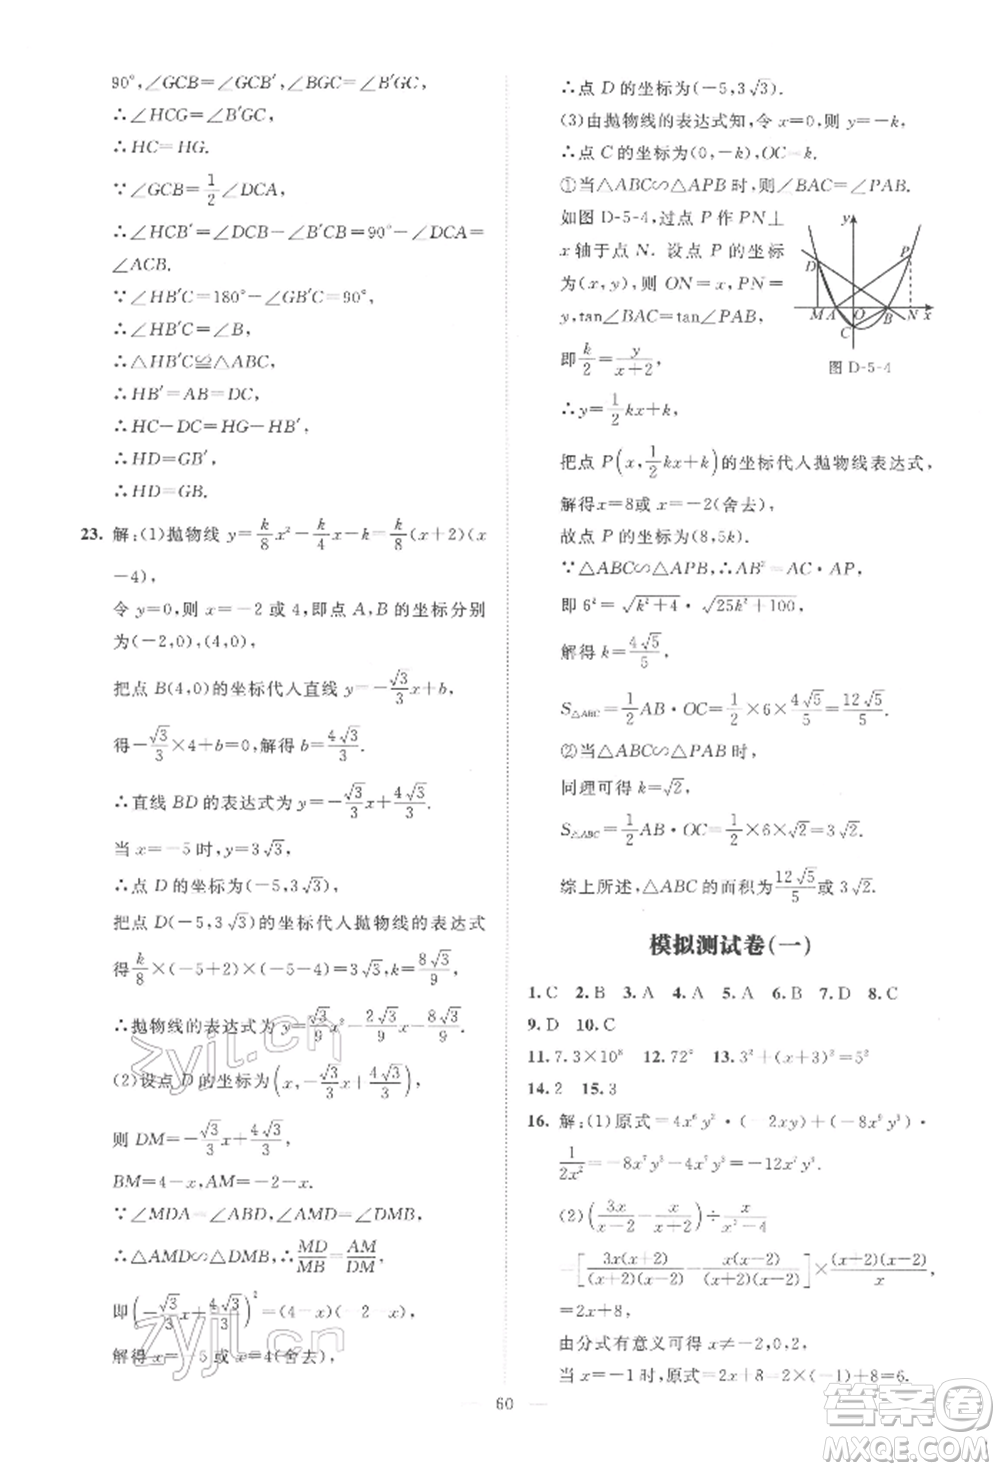 90°,∠GCB=∠GCB′,∠BGC=∠B′GC,
∴∠HCG=∠B′GC,
∴HC=HG.
∵∠GCB=1/2∠DCA,
∴∠HCB′=∠DCB-∠DCB′=90°-∠DCA=
∠ACB.
∵∠HB′C=180°-∠GB′C=90°,
∴∠HB′C=∠B,
∴△HB′C≌△ABC,
∴HB′=AB=DC,
∴HC-DC=HG-HB′,
∴HD=GB′.
∴HD=GB.
23. 解:(1)抛物线 y=k/8x²-k/4x-k=k/8(x+2)(x
-4),
令 y=0,解得 x=-2 或 4,即点 A,B 的坐标分别
为(-2,0),(4,0),
把点 B(4,0)的坐标代入直线 y=-√3/3x+b,
得-√3/3×4+b=0,解得 b=4√3/3.
∴直线 BD 的表达式为 y=-√3/3x+4√3/3.
当 x=-5 时,y=3√3,
∴点 D 的坐标为(-5,3√3),
把点 D(-5,3√3)的坐标代人抛物线的表达式
得k/8×(-5+2)(-5-4)=3√3,∴k=8√3/9,
∴抛物线的表达式为 y=√3/9x²-2√3/9x-8√3/9.
(2)设点 D 的坐标为(x,-√3/3x+4√3/3),
则 DM=-√3/3x+4√3/3,AM=-2-x,
BM=4-x,
∵∠MDA=∠ABD,∠AMD=∠DMB,
∴△AMD∽△DMB,∴MD/MB=AM/DM,
即(-√3/3x+4√3/3)²=(4-x)(-2-x)
解得 x=-5 或 x=4(舍去),
∴点 D 的坐标为(-5,3√3).
(3)由抛物线的表达式知,令 x=0,则 y=-k,
∴点 C 的坐标为(0,-k),OC=k.
①当△ABC∽△APB 时,则∠BAC=∠PAB.
如图 D-5-4,过点 P 作 PN⊥
x 轴于点 N. 设点 P 的坐标
为(x,y),则 ON=x,PN=
y,tan∠BAC=tan∠PAB,
即k/2=y/x+2,
y
D
P
M A O B N x
C
图 D-5-4
∴y=1/2kx+k,
把点 P(x,1/2kx+k)的坐标代人抛物线表达式,
解得x=8或 x=-2(舍去),
故点 P 的坐标为(8,5k).
∵△ABC∽△APB,∴AB²=AC·AP,
即 6²=√k²+4·√25k²+100,
解得 k=4√5/5,
S△ABC=1/2AB·OC=1/2×6×4√5/5=12√5/5.
②当△ABC∽△PAB 时,
同理可得 k=√2,
S△ABC=1/2AB·OC=1/2×6×√2=3√2.
综上所述,△ABC 的面积为12√5/5或 3√2.
模拟测试卷(一)
1.C 2.B 3.A 4.A 5.A 6.B 7.D 8.C
9.D 10.C
11.7.3×10⁸ 12.72° 13.3²+(x+3)²=5²
14.2 15.3
16. 解:(1)原式=4x⁶y²·(-2xy)+(-8x⁹y³)·
1/2x²=-8x⁷y³-4x⁷y³=-12x⁷y³.
(2)(3x/x-2-x/x+2)÷x/x²-4
=[3x(x+2)/(x+2)(x-2)-x(x-2)/(x+2)(x-2)]×(x+2)(x-2)/x,
=2x+8,
由分式有意义可得 x≠-2,0,2,
当 x=-1时,原式=2x+8=2×(-1)+8=6.
60
zyjl.cn
zyjl.cn
答案圈
MXQE.COM